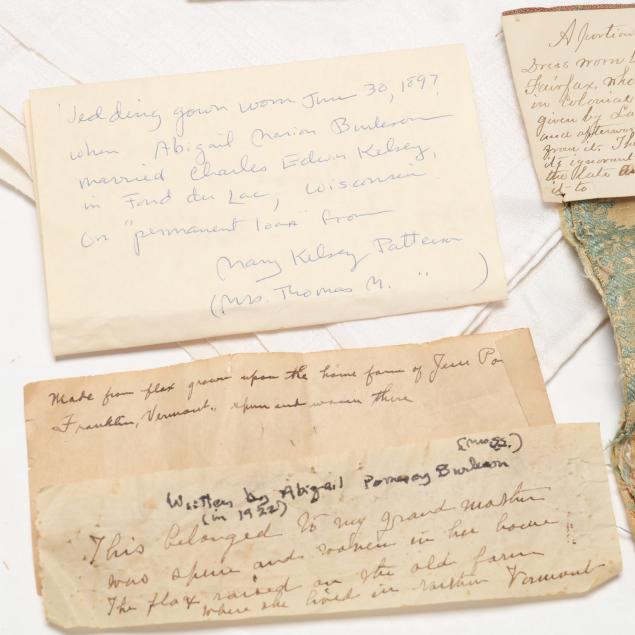 Wedding gown worn June 30, 1897
when Abigail Marion Burleson
married Charles Edwin Kelsey,
in Fond du Lac, Wisconsin.
On "permanent loan" from
Mary Kelsey Patterson
(Mrs. Thomas M. " )
A portion
Dress worn b
Fairfax, who
in colonial
given by La
and afterw
from it. Th
it ignorant
the date
is to
Made from flax grown upon the home farm of Jesse Po
Franklin, Vermont, spun and woven there
(Mrs. )
Written by Abigail Pomeroy Burleson
(in 1922)
This belonged to my grand mother
was spun and woven in her home
The flax raised on the old farm
where she lived in Vermont